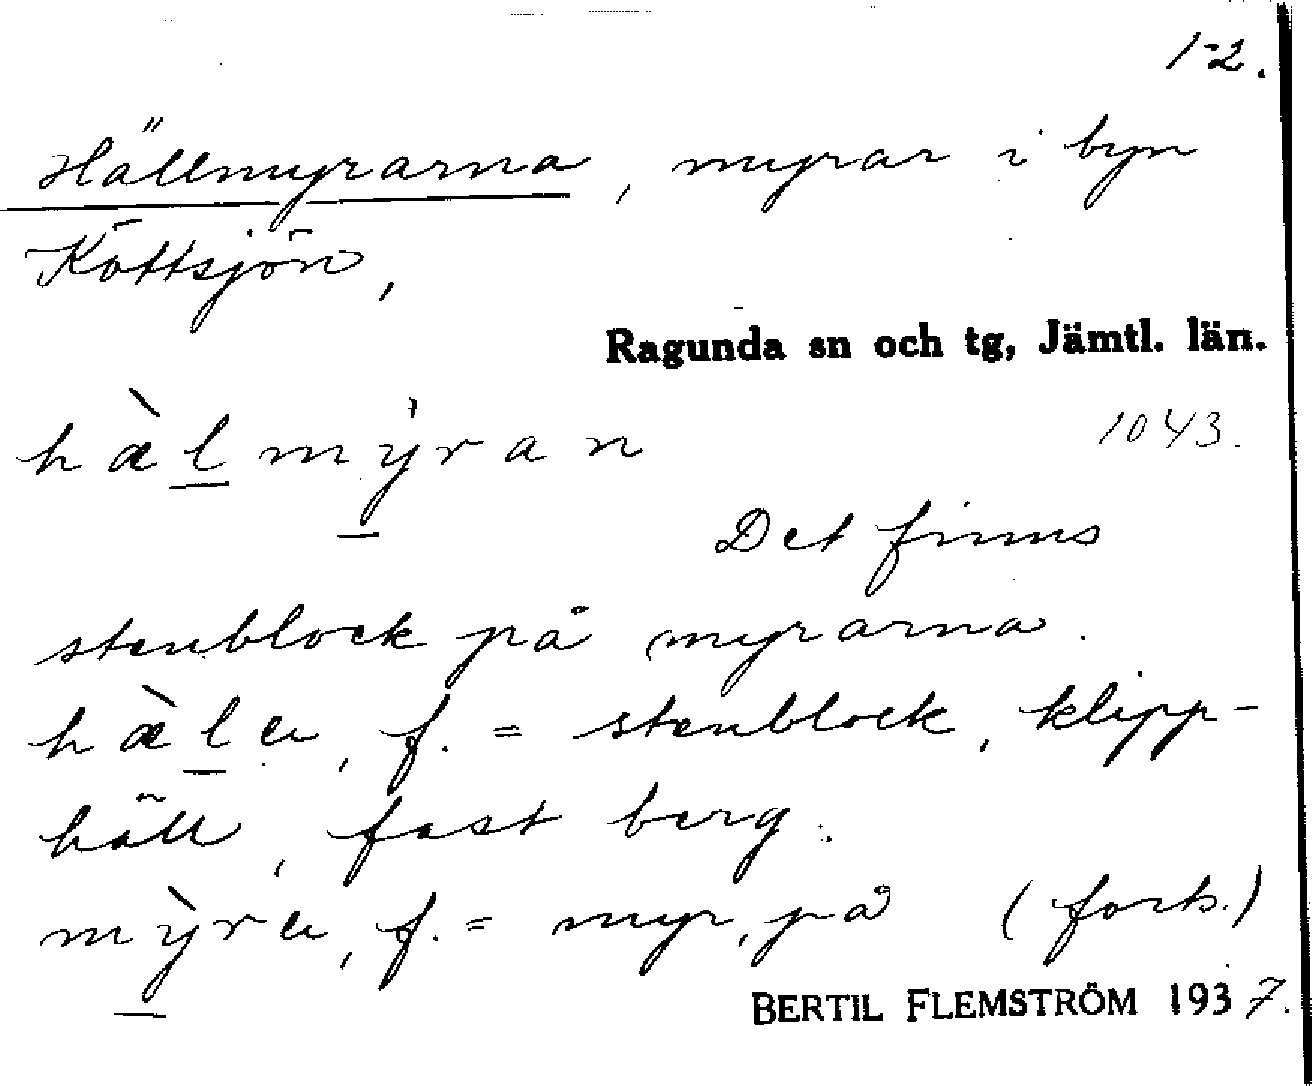 1-2.
Hällmyrarna, myrar i byn
Köttsjön,
Ragunda sn och tg, Jämtl. län.
hæ̀l̲mỳ̲ran
1043.
Det finns
stenblock på myrarna.
hæ̀l̲a, f. = stenblock, klipp-
häll, fast berg.
mỳ̲ra, f. = myr, på (forts.)
BERTIL FLEMSTRÖM 1937.